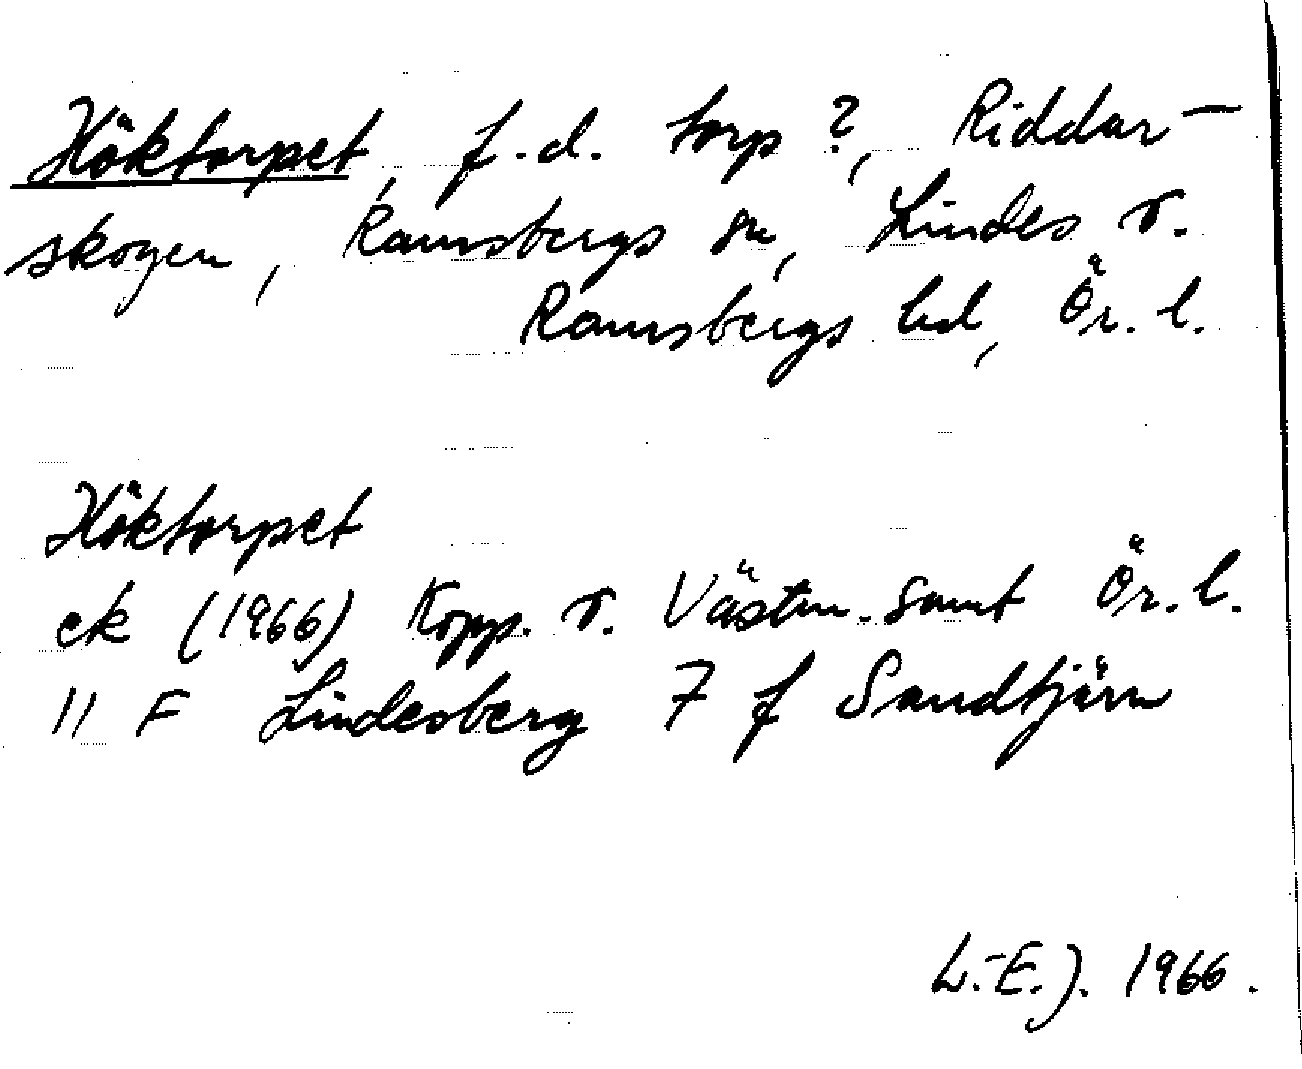 Höktorpet, f.d. torp?, Riddar-
skogen, Ramsbergs sn, Lindes o.
Ramsbergs hd, Ör. l.
Höktorpet
ek (1966) Kopp. o. Västm. samt Ör. l.
11 F Lindesberg 7 f Sandtjärn
L.-E. J. 1966.